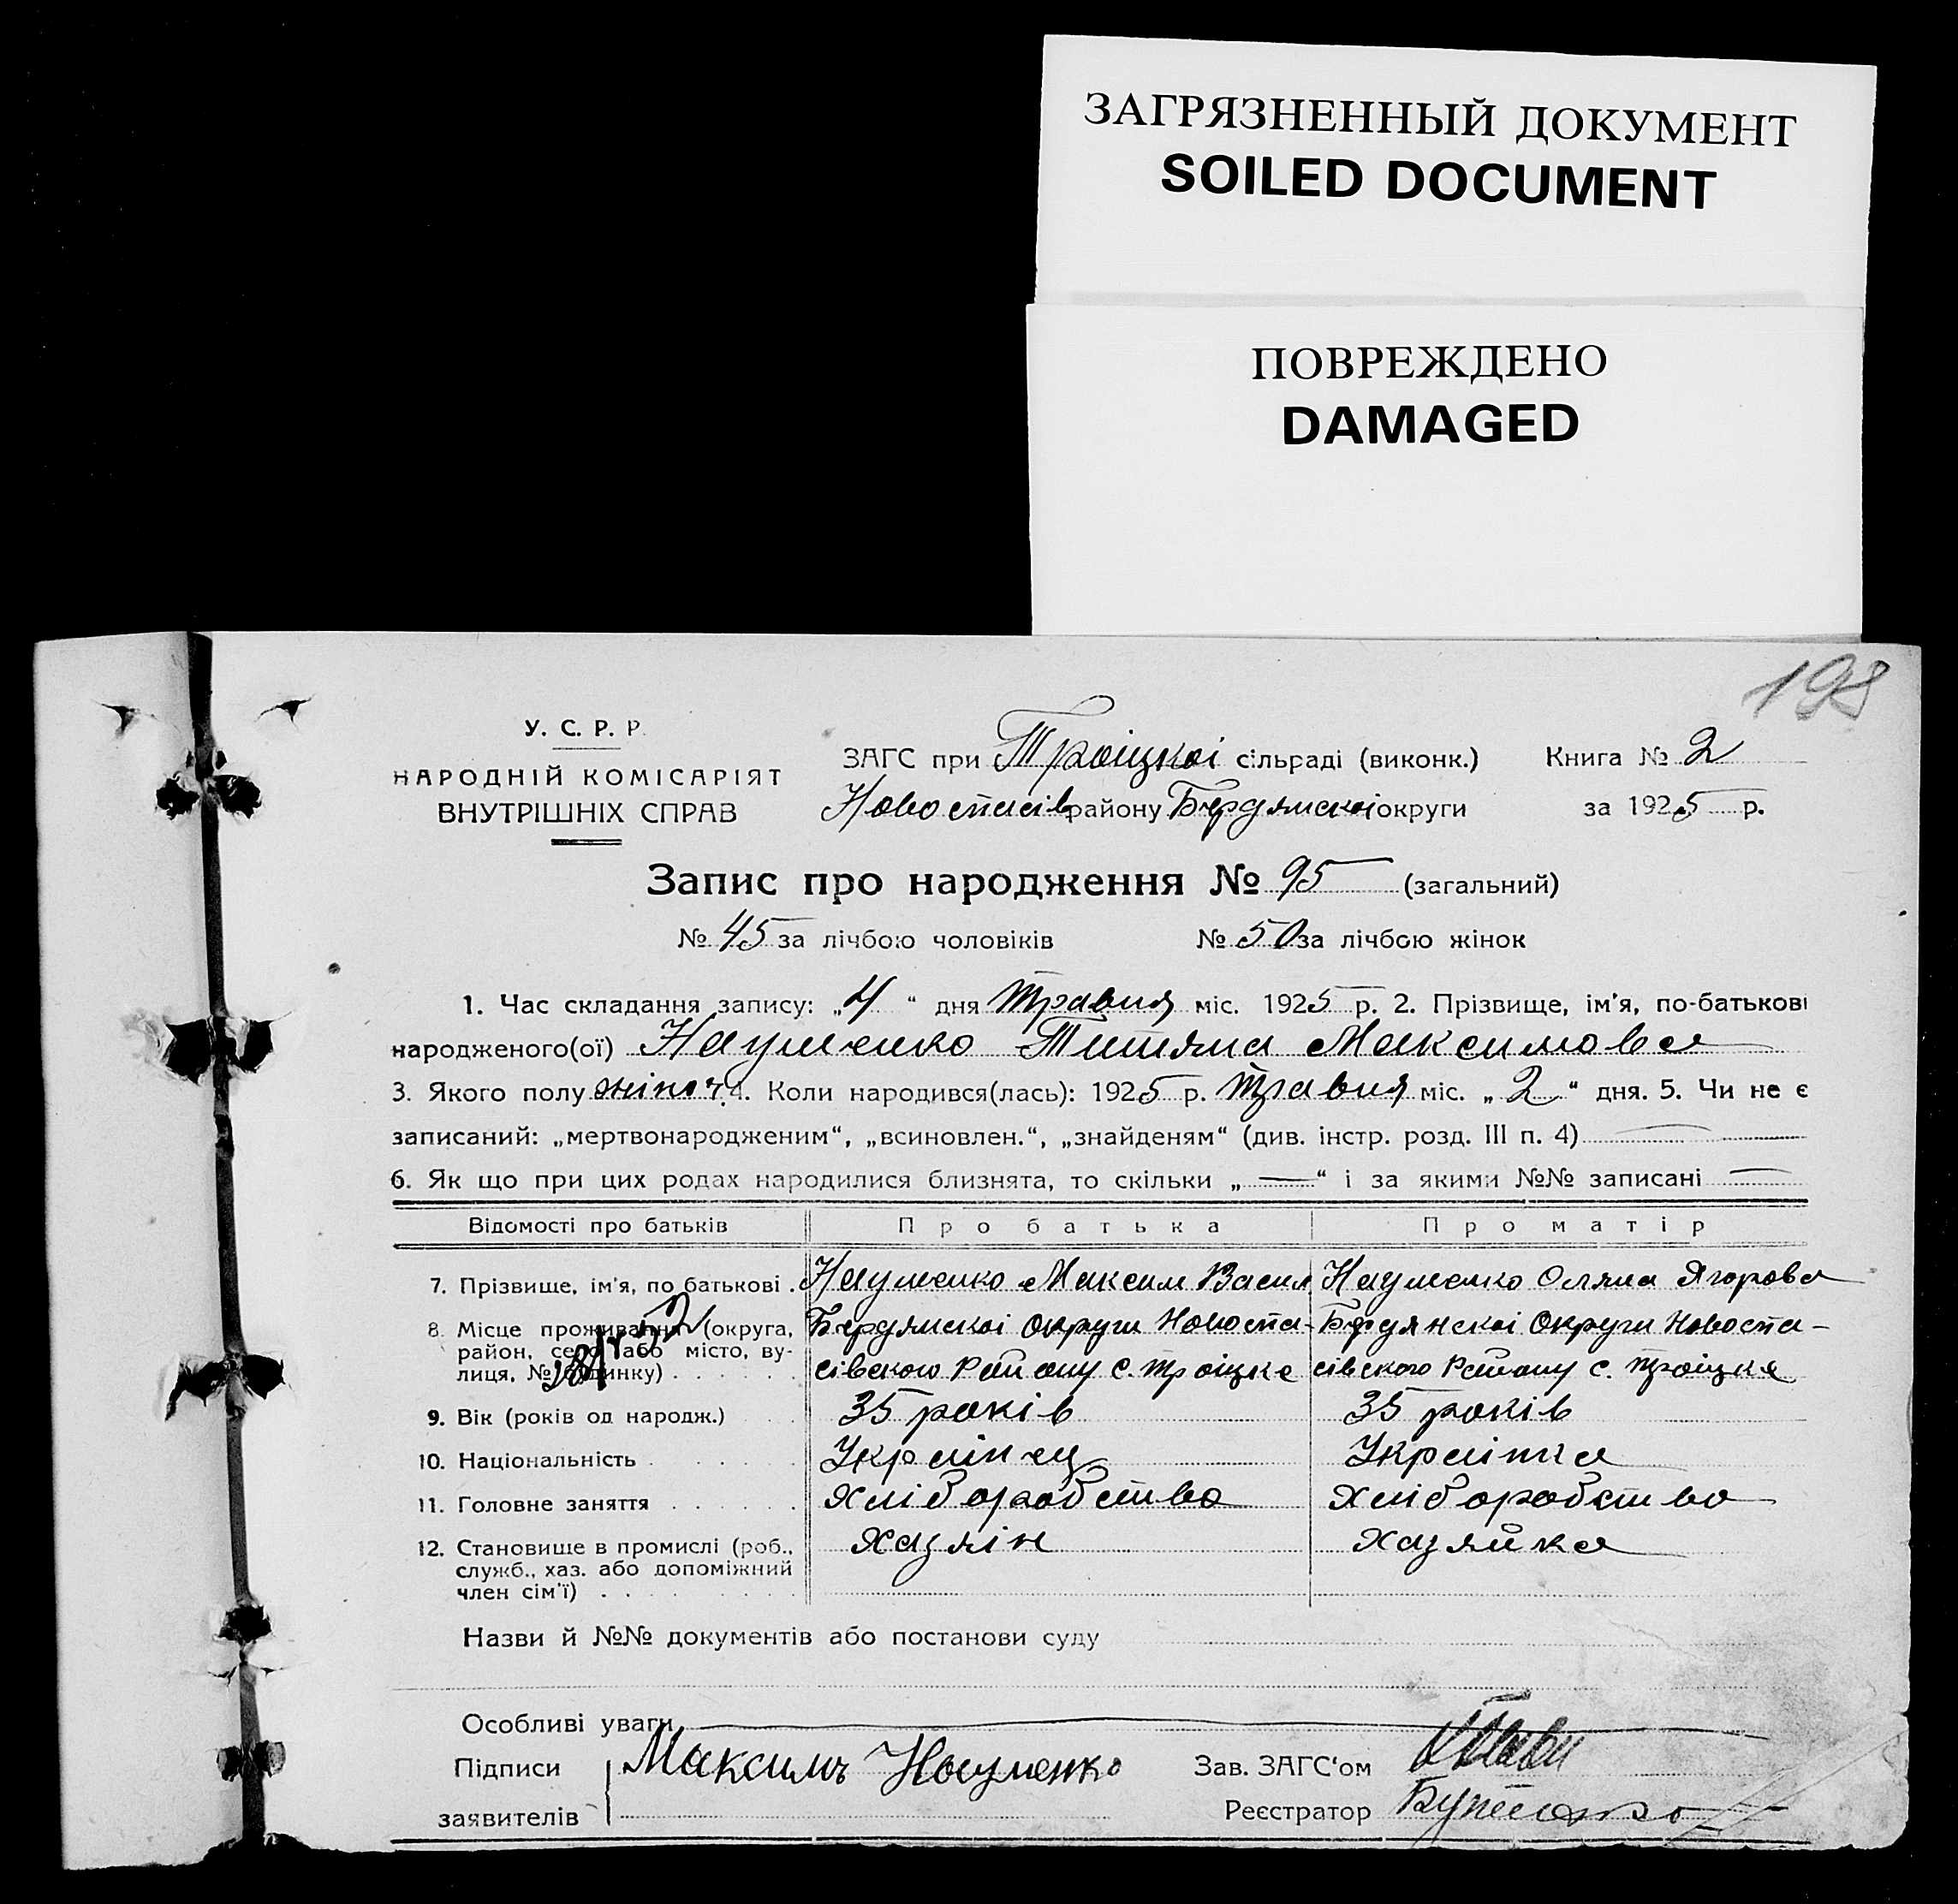 ЗАГРЯЗНЕННЫЙ ДОКУМЕНТ
SOILED DOCUMENT
ПОВРЕЖДЕНО
DAMAGED
198
У. С. Р. Р.
НАРОДНІЙ КОМІСАРІЯТ
ВНУТРІШНІХ СПРАВ
ЗАГС при Троіцкоі сільраді (виконк.) Книга № 2
Новоспасів району Бердянскоі округи за 1925 р.
Запис про народження № 95 (загальний)
№ 45 за лічбою чоловіків № 50 за лічбою жінок
1. Час складання запису: „4“ дня Травня міс. 1925 р. 2. Прізвище, ім'я, по-батькові
народженого(ої) Науменко Титяна Максимова
3. Якого полу жіноч. 4. Коли народився(лась): 1925 р. Травня міс. „2“ дня. 5. Чи не є
записаний: „мертвонародженим“, „всиновлен.“, „знайденям“ (див. інстр. розд. III п. 4) —
6. Як що при цих родах народилися близнята, то скільки „—“ і за якими №№ записані —
Відомості про батьків Про батька Про матір
7. Прізвище, ім'я, по батькові . Науменко Максим Васил Науменко Оляна Ягорова
8. Місце проживання (округа, район, село або місто, вулиця, № будинку) Бердянскоі Округи Новоспа- Бердянскоі Округи Новоспа-
сівского Району с. Троіцке сівского Району с. Троіцке
9. Вік (років од народж.) 35 років 35 років
10. Національність Украінец Украінка
11. Головне заняття Хліборобство Хліборобство
12. Становище в промислі (роб., Хазяін Хазяйка
служб., хаз. або допоміжний
член сім'ї)
Назви й №№ документів або постанови суду
Особливі уваги —
Підписи Максимъ Науменко Зав. ЗАГС'ом
заявителів Реєстратор